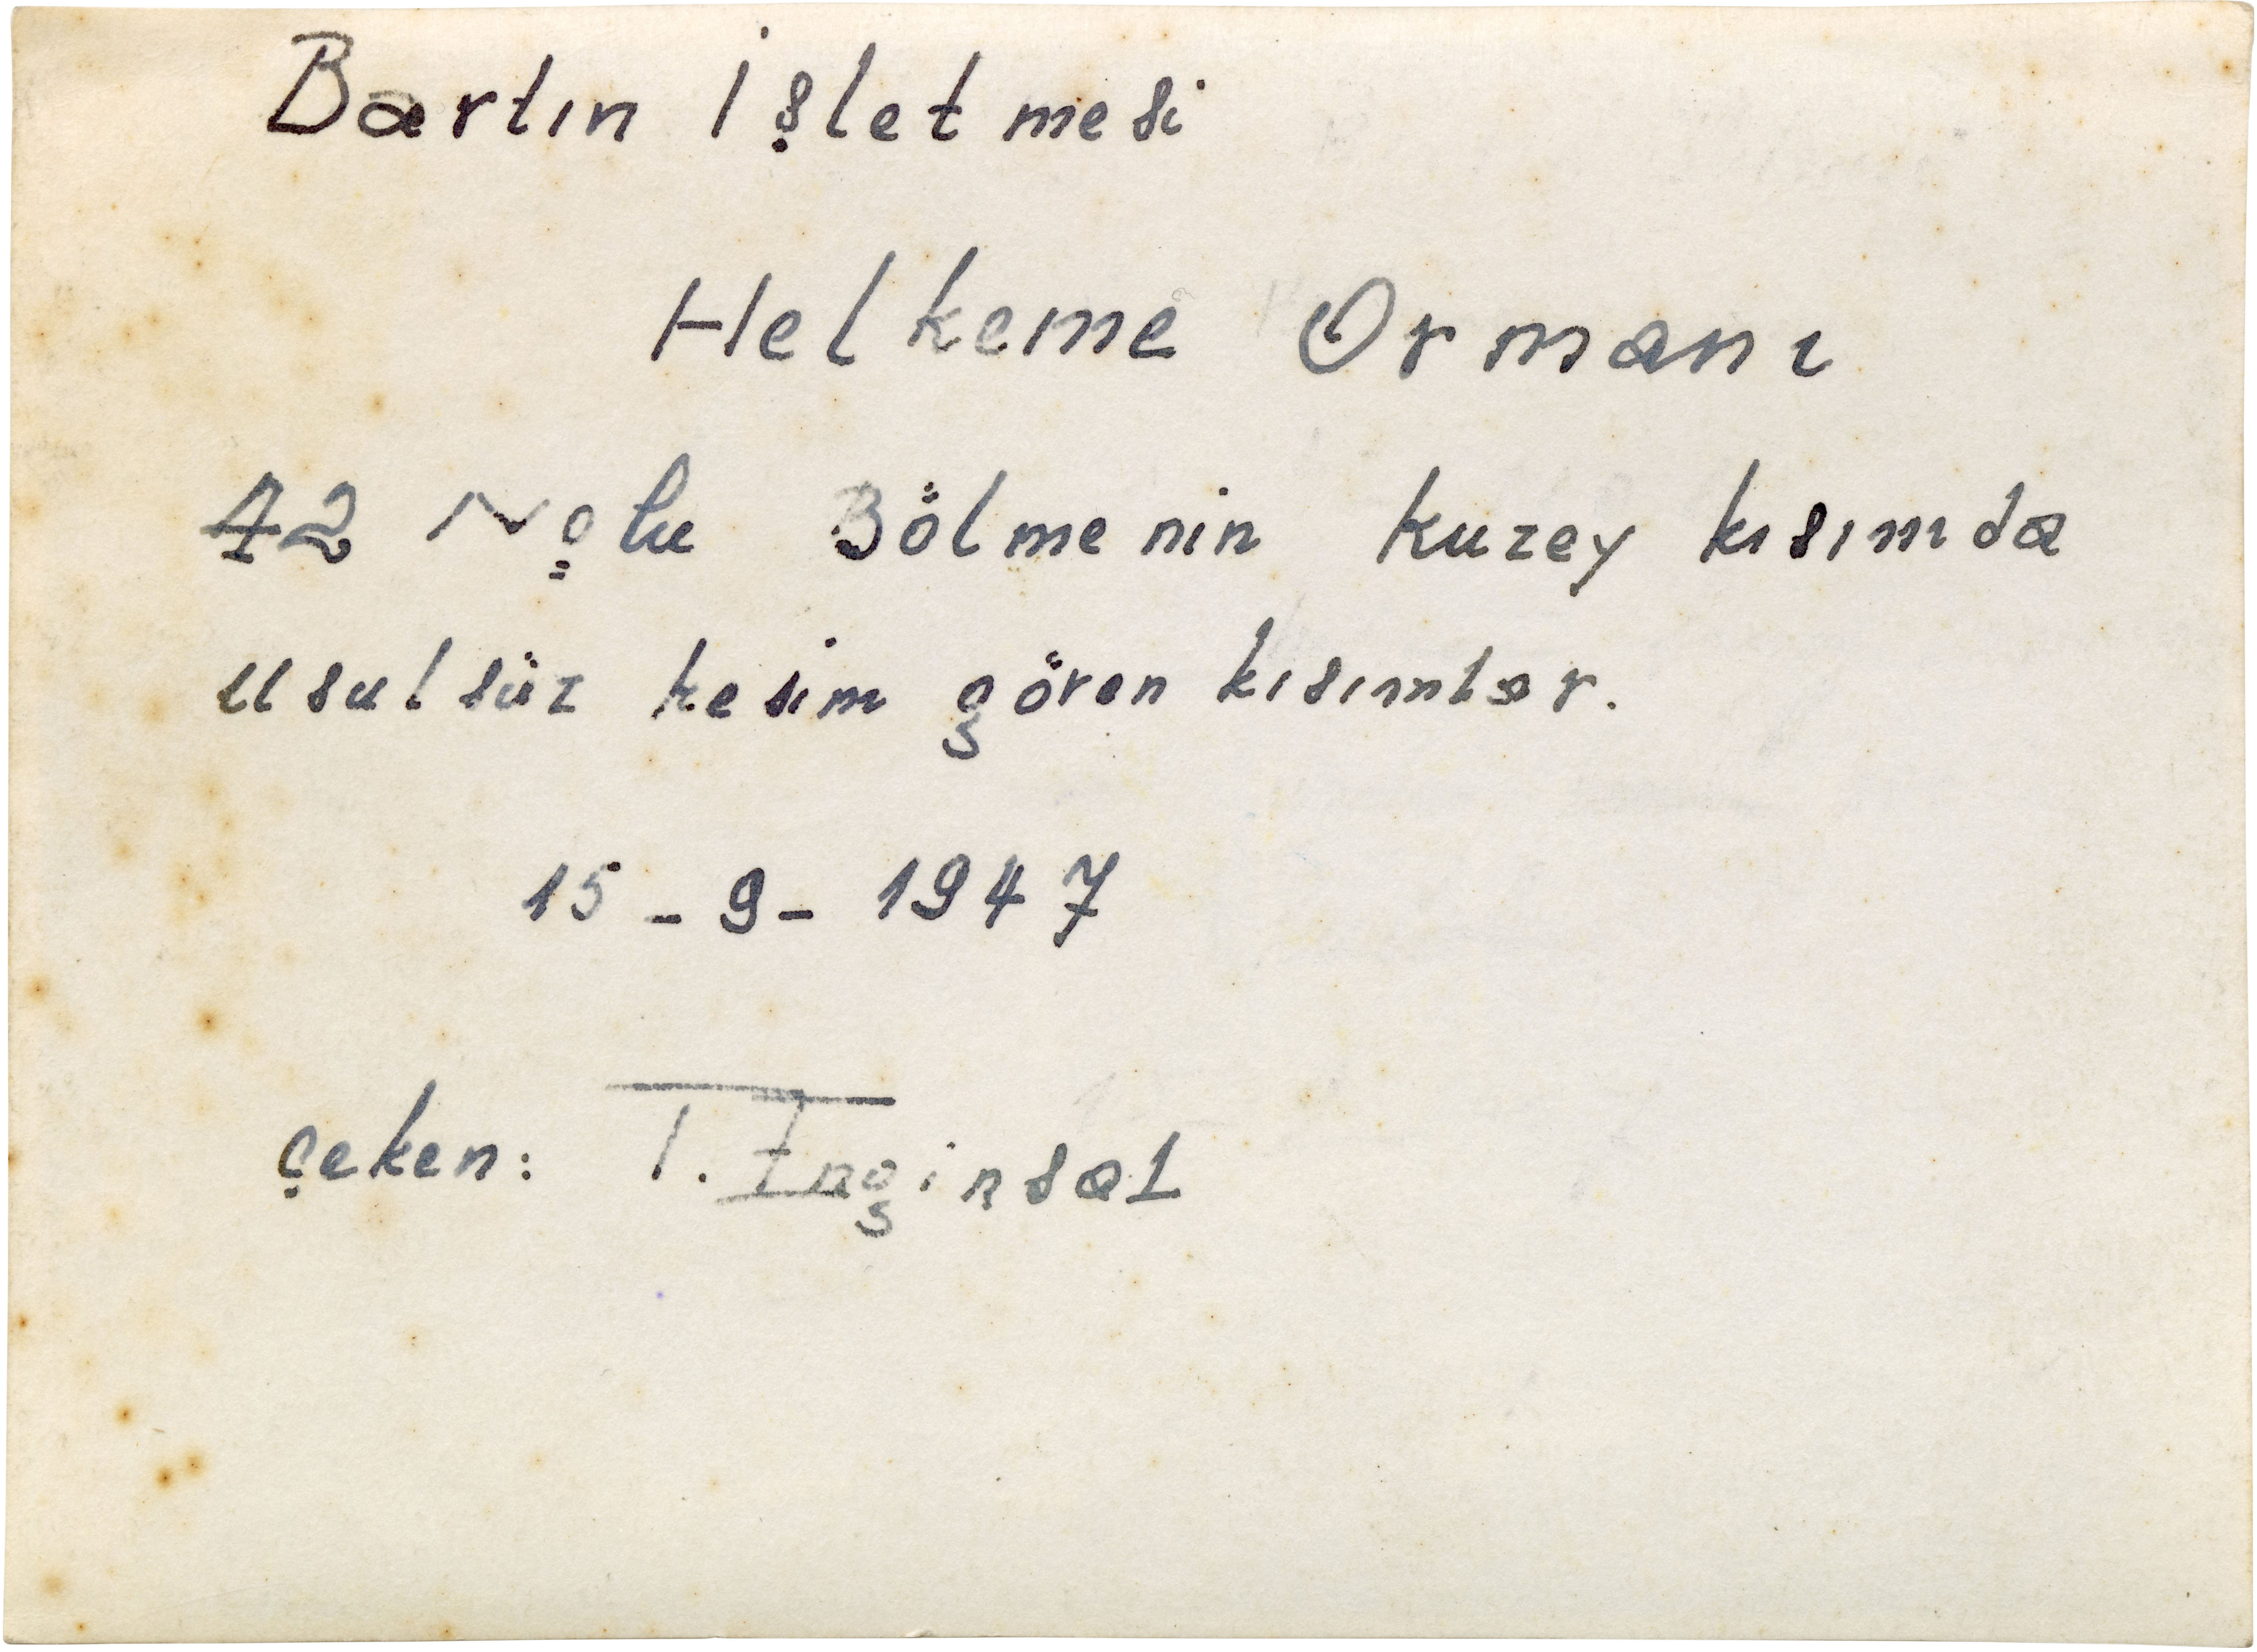 Bartın İşletmesi
Helkeme Ormanı
42 Nolu Bölmenin kuzey kısımda
usulsüz kesim gören kısımlar.
15-9-1947
Çeken: T. Enginsal